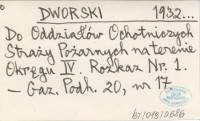 DWORSKI 1932...
Do Oddziałów Ochotniczych
Straży Pożarnych na terenie
Okręgu IV. Rozkaz Nr. 1.
– Gaz. Podh. 20, nr 17
BJ/019/0686